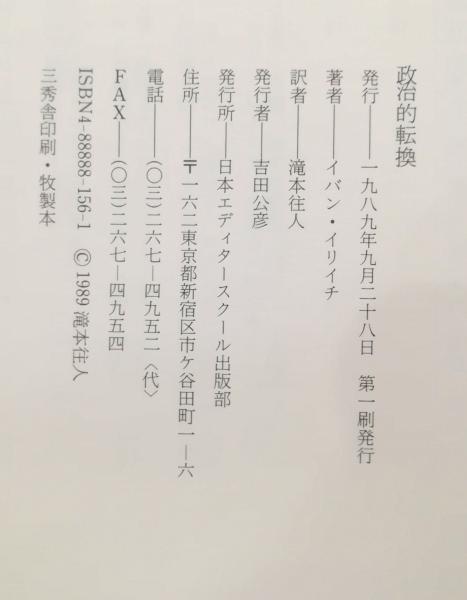 政治的転換
発行――一九八九年九月二十八日　第一刷発行
著者――イバン・イリイチ
訳者――滝本往人
発行者――吉田公彦
発行所――日本エディタースクール出版部
住所――〒一六二東京都新宿区市ケ谷田町一―六
電話――(〇三)二六七―四九五二〈代〉
FAX――(〇三)二六七―四九五四
ISBN4-88888-156-1　©1989 滝本往人
三秀舎印刷・牧製本